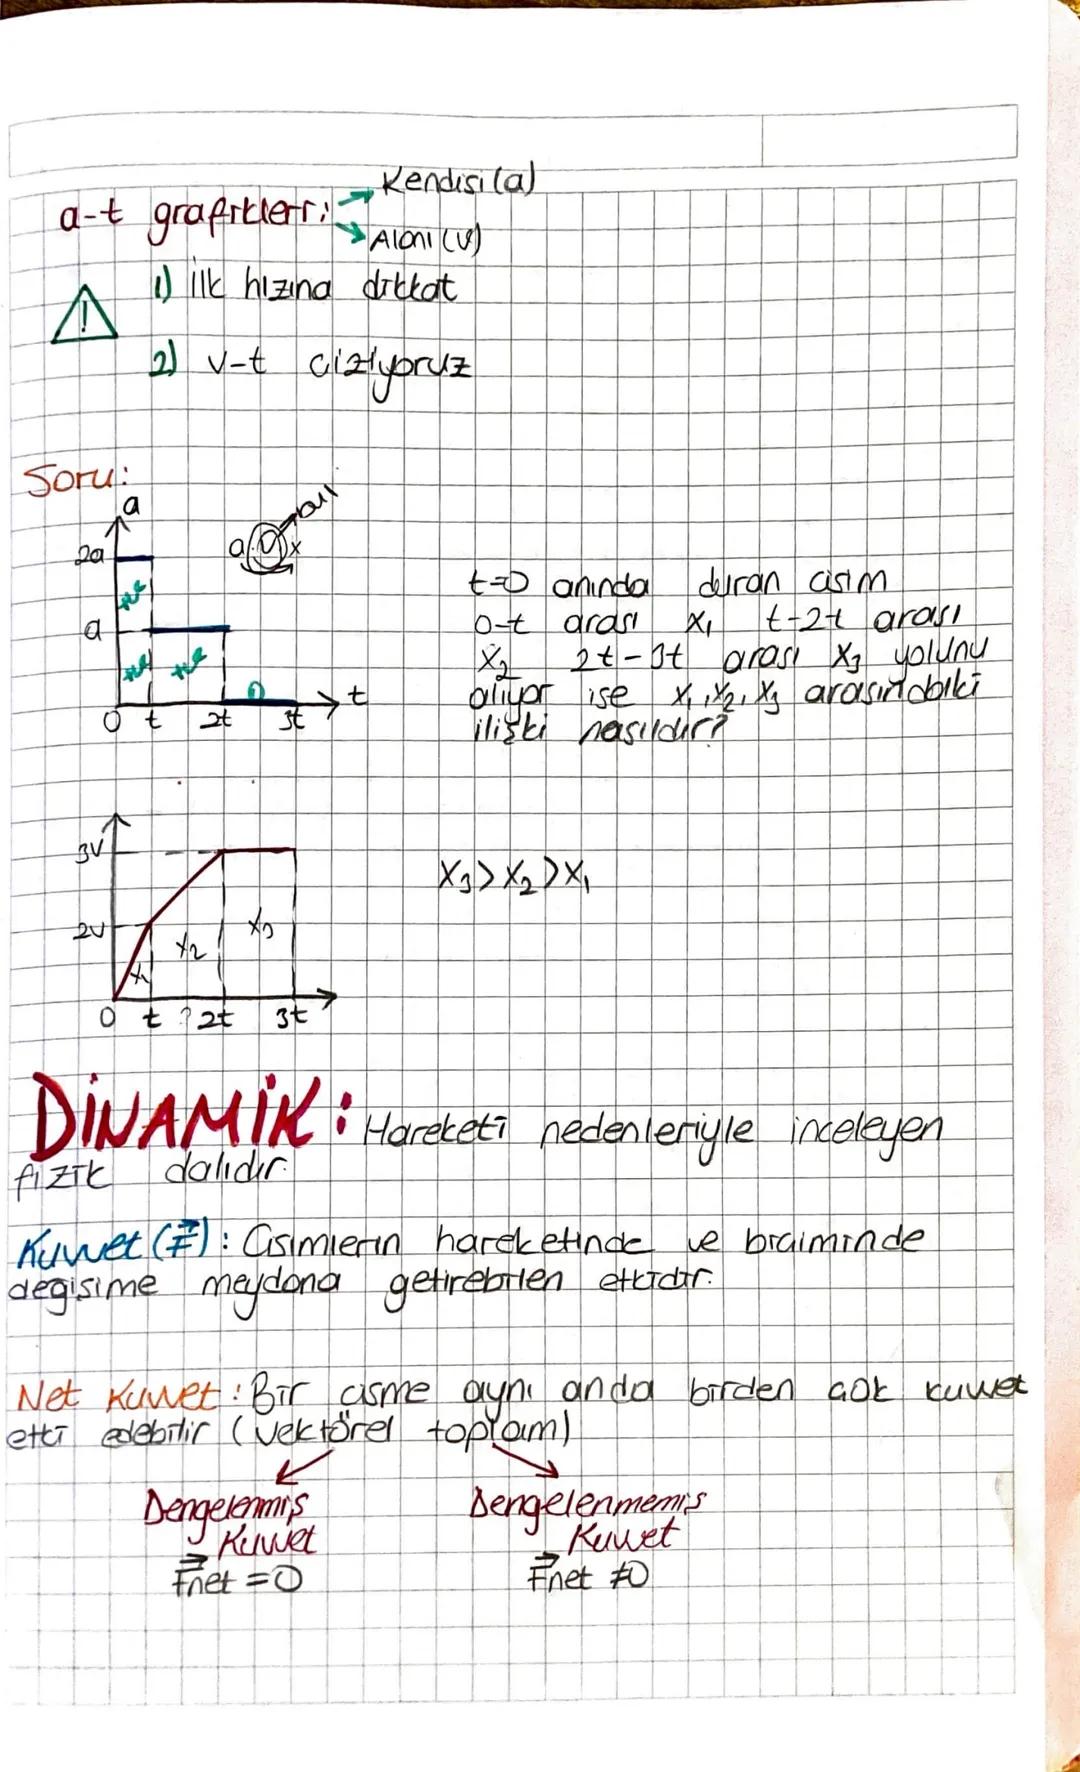 a-t grafikleri:
Kendisi (a)
Alanı (v)
!
1) İlk hızına dikkat
2) v-t çiziyoruz
Soru:
a
2a
a
0 t 2t 3t t
t=0 anında duran cisim
0-t arası x₁ t-2t arası
x₂ 2t-3t arası x₃ yolunu
alıyor ise x₁, x₂, x₃ arasındaki
ilişki nasıldır?
3V
2V
x₁ x₂ x₃
0 t 2t 3t
x₃ > x₂ > x₁
DİNAMİK: Hareketi nedenleriyle inceleyen
fizik dalıdır.
Kuvvet (F): Cisimlerin hareketinde ve biçiminde
değişime meydana getirebilen etkidir.
Net Kuvvet: Bir cisme aynı anda birden çok kuvvet
etki edebilir (vektörel toplam)
Dengelenmiş
Kuvvet
Fnet = 0
Dengelenmemiş
Kuvvet
Fnet ≠ 0